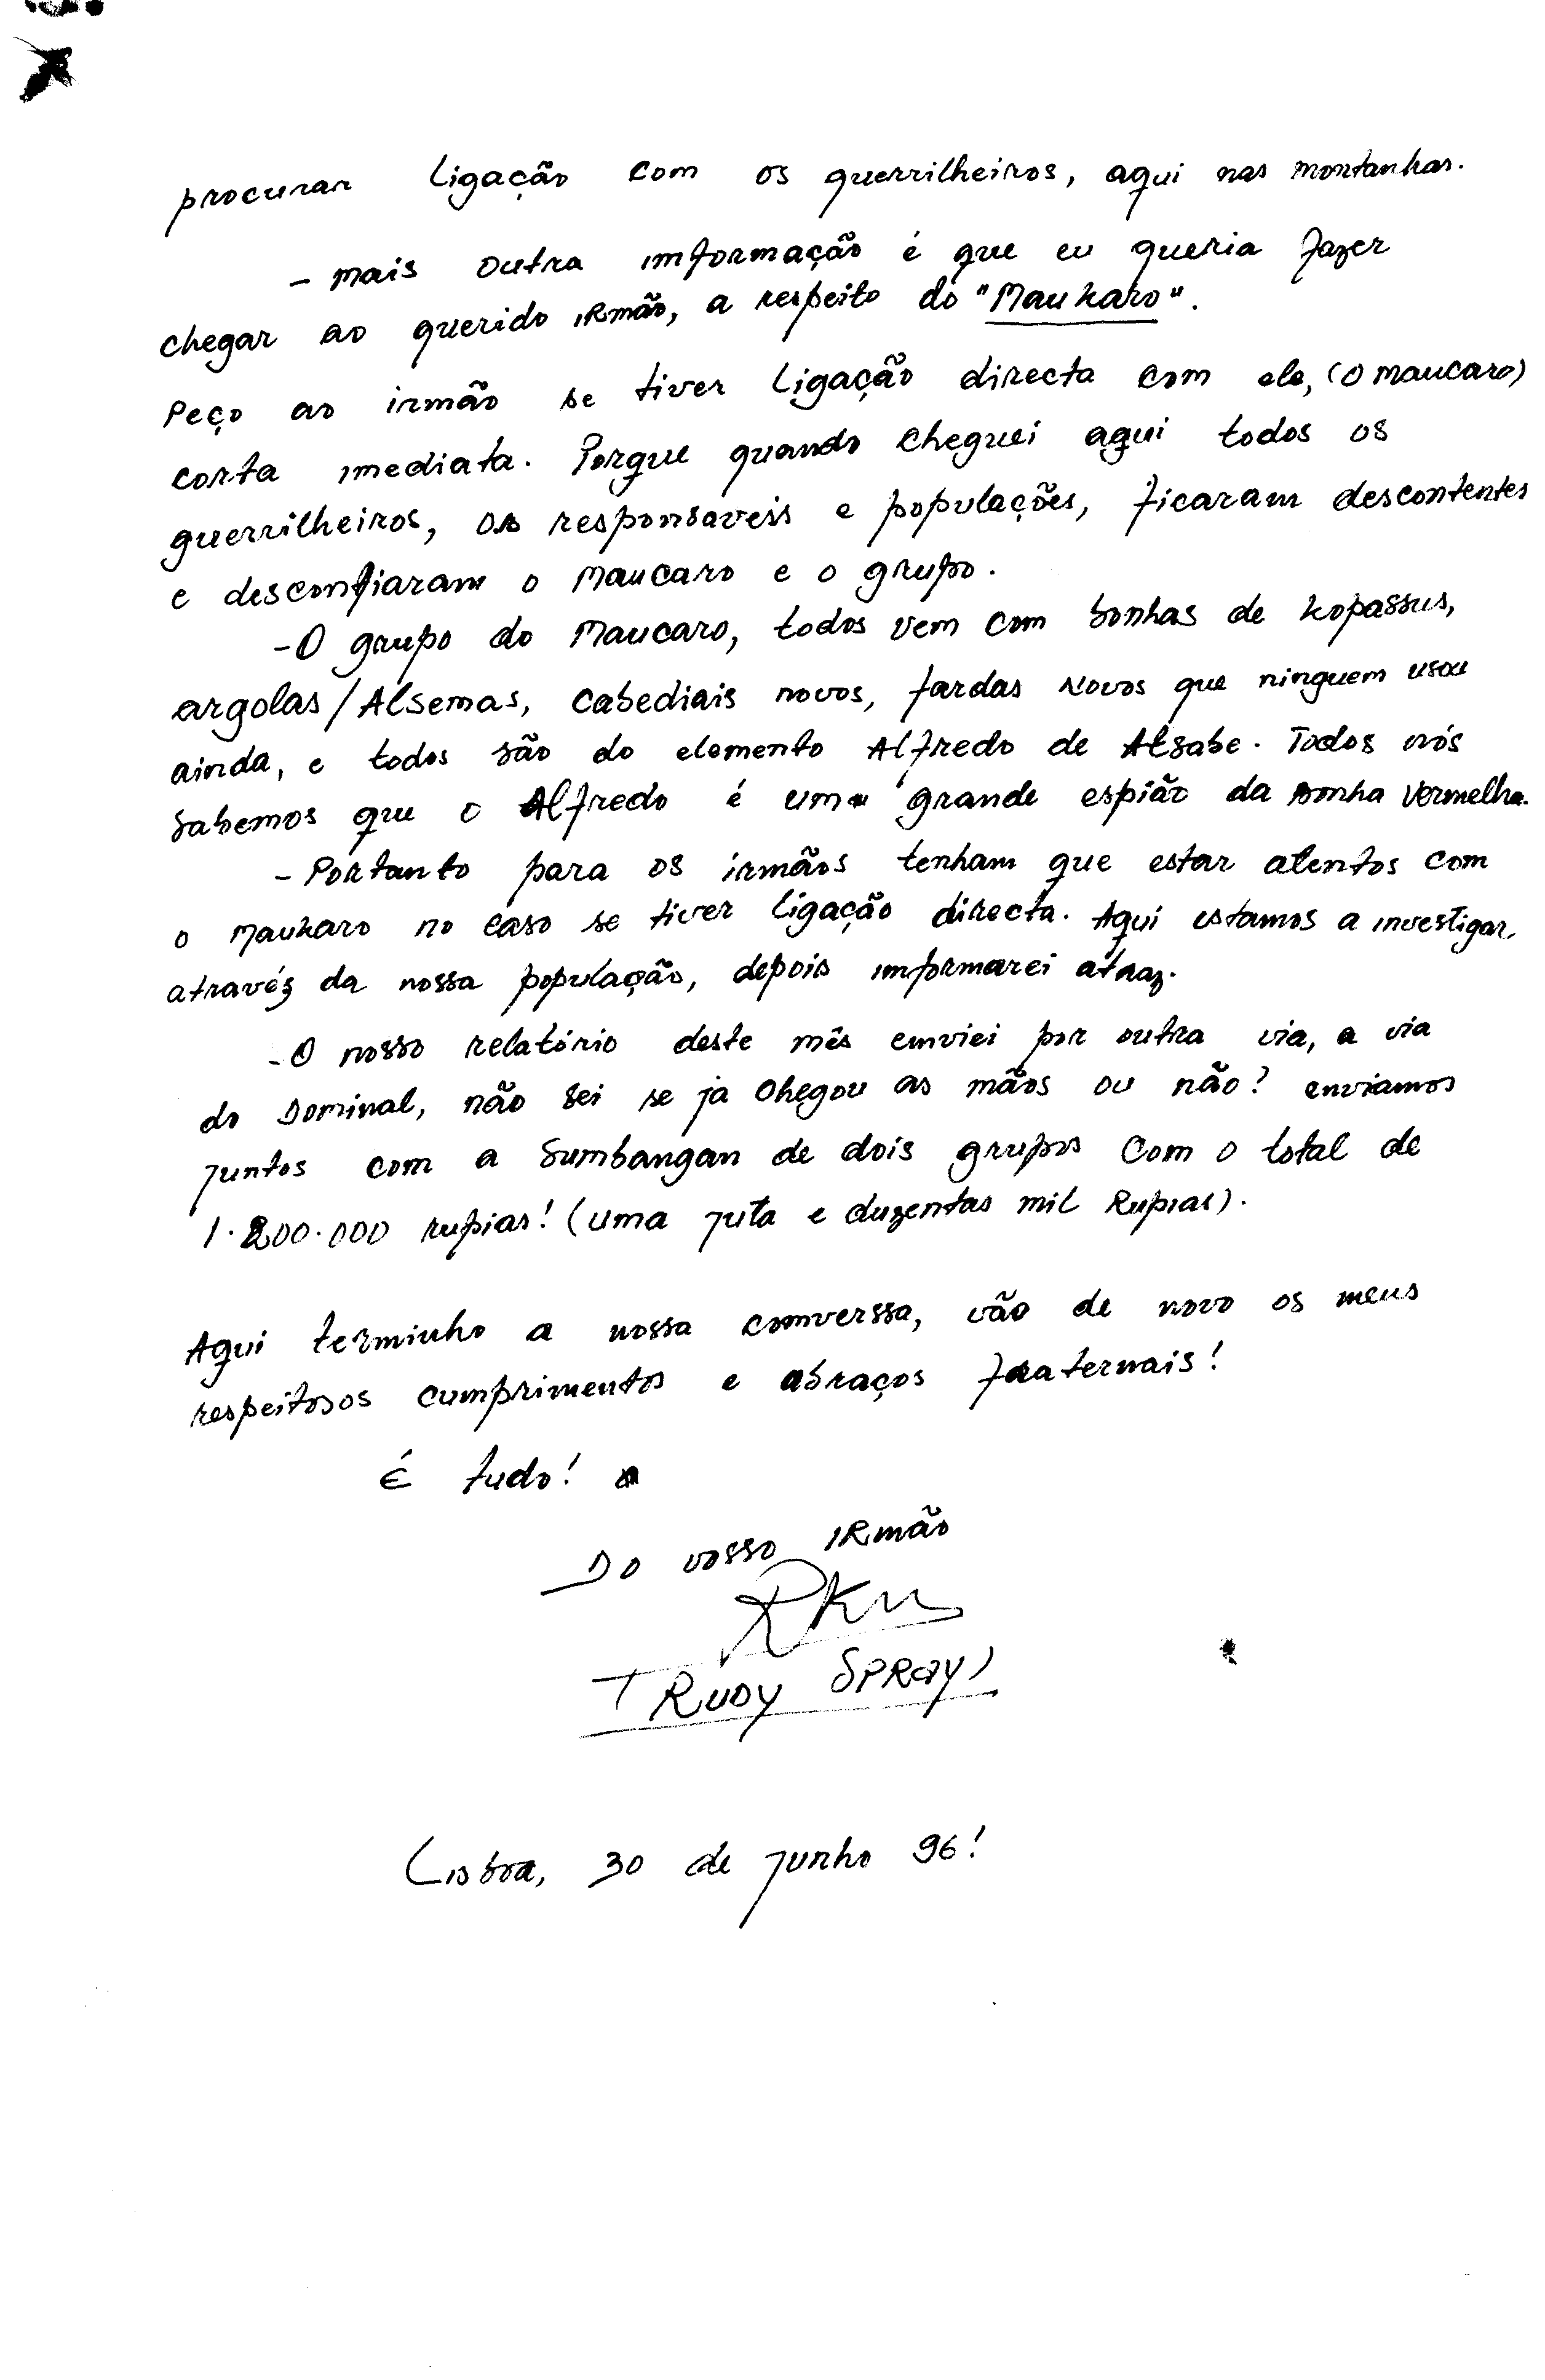 procurar ligação com os guerrilheiros, aqui nas montanhas.
- mais outra imformação é que eu queria fazer
chegar ao querido IRmão, a respeito do "Mauharo".
Peço ao irmão se tiver ligação directa com ele, (o maucaro)
corta imediata. Porque quando cheguei aqui todos os
guerrilheiros, os responsaveis e populações, ficaram descontentes
e desconfiaram o Maucaro e o grupo.
- O grupo do Maucaro, todos vem com bonhas de kopassus,
argolas/Alsemas, cabediais novos, fardas novos que ninguem usou
ainda, e todos são do elemento Alfredo de Atsabe. Todos nós
sabemos que o Alfredo é um grande espião da bonha vermelha.
- Portanto para os irmãos tenham que estar atentos com
o Mauharo no caso se tiver ligação directa. Aqui estamos a investigar,
através da nossa população, depois imformarei atraz.
- O nosso relatório deste mês enviei por outra via, a via
do Dominal, não sei se ja chegou as mãos ou não? enviamos
juntos com a Sumbangan de dois grupos com o total de
1.200.000 rupias! (uma juta e duzentas mil Rupias).
Aqui terminho a nossa comverssa, vão de novo os meus
respeitosos cumprimentos e abraços fraternais!
É tudo!
Do vosso IRmão
RKM
(RUDY SPRAY)
Lisboa, 30 de junho 96!